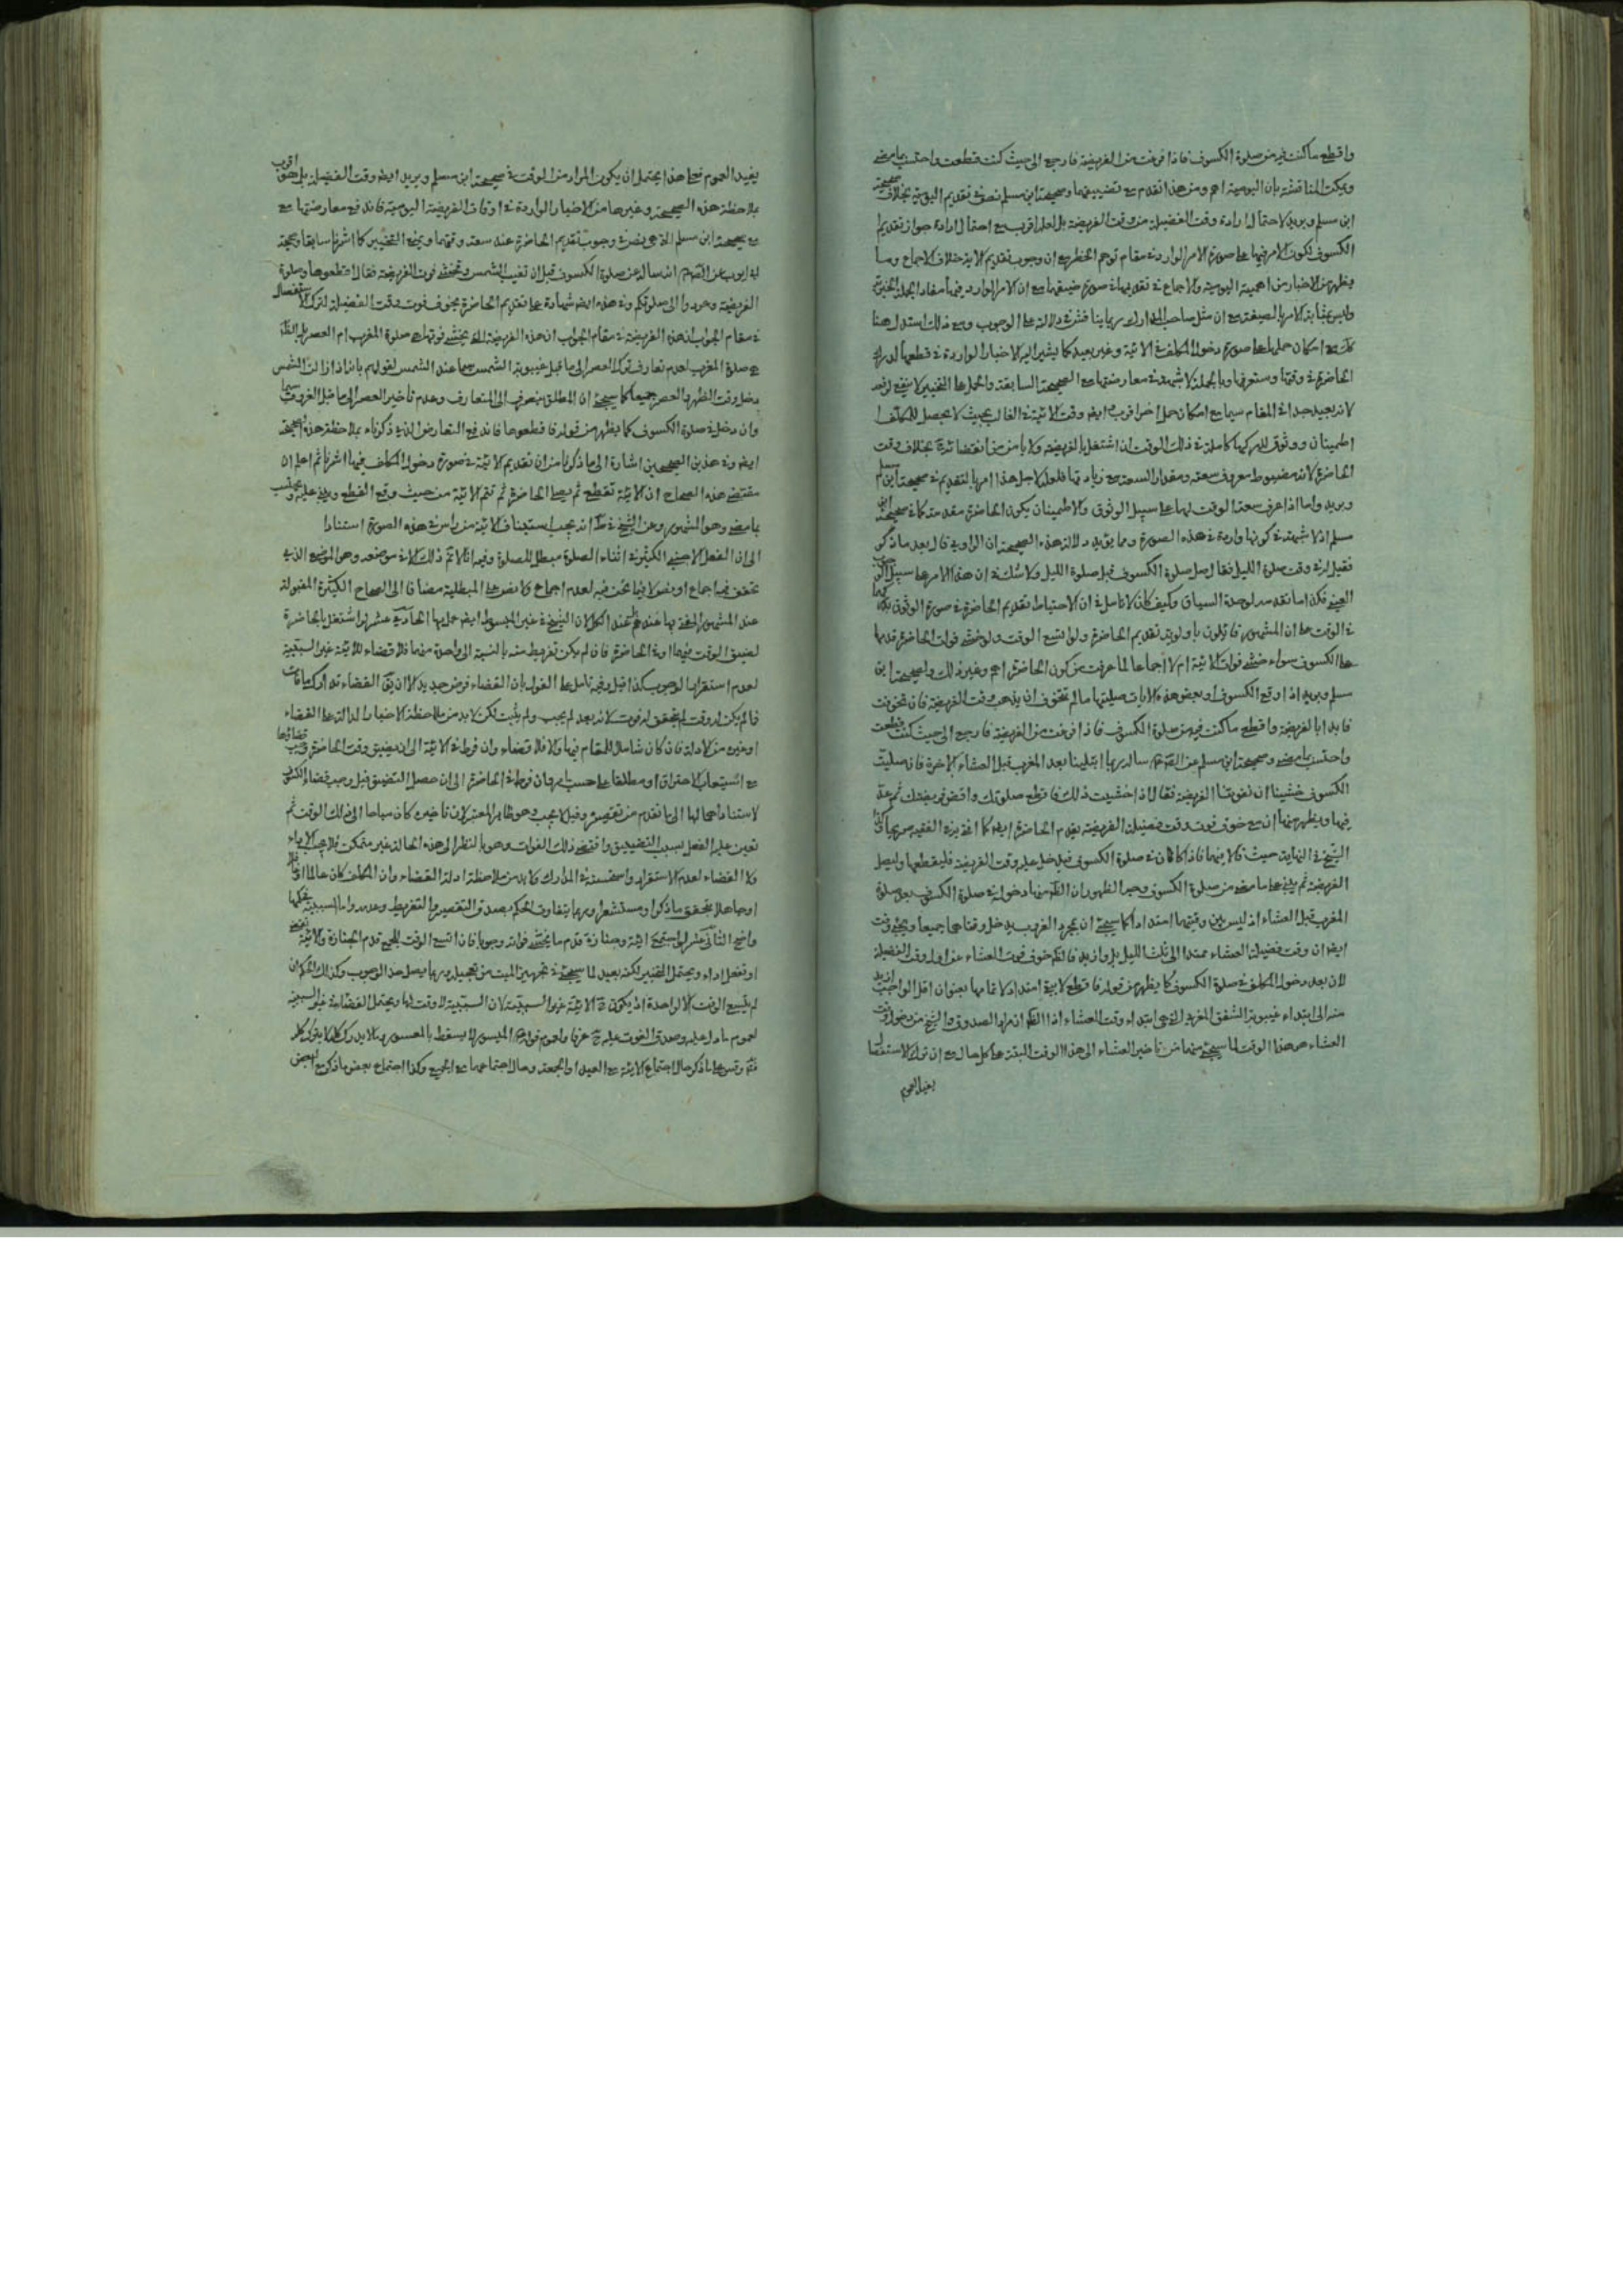 واقطع ما كنت فيه من صلوة الكسوف فاذا فرغت من الفريضة فارجع الى حيث كنت قطعت واحتسب بما مضى
ويمكن المناقشة بان اليومية اهم ومن هذا تقدم مع تضييقهما وصحيحة ابن مسلم نص في تقديم اليومية بخلاف صحيحة
ابن مسلم وبريد لاحتمال ارادة وقت الفضيلة من وقت الفريضة بل لعله اقرب مع احتمال ارادة جواز تقديم
الكسوف لكون الامر فيها على صورة الامر الوارد في مقام توهم الحظر مع ان وجوب تقديم الاية خلاف الاجماع وما
يظهر من الاخبار من اهمية اليومية والاجماع في تقديمها في صورة ضيقهما مع ان الامر الوارد فيها مفاد الجملة الخبرية
وليس بمثابة الامر بالصيغة مع ان مثل صاحب المدارك ربما يناقش في دلالته على الوجوب ومع ذلك استدل هنا
امكان حملها على صورة دخول المكلف في الاتية وغير بعيد كما يشير اليه الاخبار الواردة في قطعها لدرك
الحاضرة في وقتها وستعرفها وبالجملة لا شبهة في معارضتها مع الصحيحة السابقة والحمل على التخيير لا ينفع
لانه بعيد جدا في المقام سيما مع امكان حمل اخر اقرب ايضا وقت الاتية في الغالب بحيث لا يحصل للمكلف
اطمينان ووثوق للدركها كاملة في ذلك الوقت ان اشتغل بالفريضة ولا يأمن من انقضائه بخلاف وقت
الحاضرة لانه مضبوط معروف سعته ومقدار السعة مع زيادتها فلعله لاجل هذا امر بالتقديم في صحيحة ابن مسلم
وبريد واما اذا عرف سعة الوقت لهما على سبيل الوثوق والاطمينان يكون الحاضرة مقدمة كما في صحيحة ابن
مسلم اذ لا شبهة في كونها واردة في هذه الصورة ومما يؤيد دلالة هذه الصحيحة ان الراوي قال بعد ما ذكر
فقيل له في وقت صلوة الليل فقال صل صلوة الكسوف قبل صلوة الليل ولا شك في ان هذا الامر على سبيل
فكذا ما تقدمه لوحدة السياق وكيف كان لا تأمل في ان الاحتياط تقديم الحاضرة في صورة الوثوق
في الوقت على ان المشهور قائلون باولوية تقديم الحاضرة ولو اتسع الوقت ولو خشي فوات الحاضرة قدمها
على الكسوف سواء خشي فوات الاتية ام لا اجماعا لما عرفت من كون الحاضرة اهم وغير ذلك ولصحيحة ابن
مسلم وبريد اذا وقع الكسوف او بعض هذه الايات صليتها ما لم تتخوف ان يذهب وقت الفريضة فان تخوفت
فابدا بالفريضة واقطع ما كنت فيه من صلوة الكسوف فاذا فرغت من الفريضة فارجع الى حيث كنت قطعت
واحتسب بما مضى وصحيحة ابن مسلم عن سأله ربما ابتلينا بعد المغرب قبل العشاء الاخرة فان صليت
الكسوف خشينا ان تفوتنا الفريضة فقال اذا خشيت ذلك فاقطع صلوتك واقض فريضتك ثم عد
فيها ويظهر منها ان مع خوف فوت وقت فضيلة الفريضة يقدم الحاضرة ايضا كما افتى به في الفقيه صريحا
الشيخ في النهاية حيث قالا فيها فاذا كان في صلوة الكسوف فدخل عليه وقت الفريضة فليقطعها وليصل
الفريضة ثم يبني على ما مضى من صلوة الكسوف وجه الظهور ان الظاهر منها دخوله في صلوة الكسوف بعد صلوة
المغرب قبل العشاء اذ ليس بين وقتيهما امتداد كما سيجئ ان بمجرد الغروب يدخل وقتاهما جميعا ويجئ
ايضا ان وقت فضيلة العشاء ممتد الى ثلث الليل بل وازيد فالحكم خوف فوت العشاء عن اول وقت الفضيلة
لان بعد دخول المكلف في صلوة الكسوف كما يظهر من قوله فاقطع لا يبقى امتداد لاتمامها بعنوان اقل الواجب
منه الى ابتداء غيبوبة الشفق المغربي الذي هو ابتداء وقت العشاء اذ الظاهر انه الصدوق والشيخ من دخول وقت
العشاء هو هذا الوقت لما سيجئ منهما من تأخير العشاء الى هذا الوقت البتة على كل حال مع ان ترك الاستفصال
يفيد العموم
يفيد العموم فعلى هذا يحتمل ان يكون المراد من الوقت في صحيحة ابن مسلم وبريد ايضا وقت الفضيلة بل هو اقرب
بملاحظة هذه الصحيحة وغيرها من الاخبار الواردة في اوقات الفريضة اليومية فاندفع معارضتها مع
صحيحة ابن مسلم التي هي نص في وجوب تقديم الحاضرة عند سعة وقتهما ويتجه التخيير كما اشرنا سابقا وصحيحة
ابي ايوب عن انه سأله عن صلوة الكسوف قبل ان تغيب الشمس ونخشى فوت الفريضة فقال اقطعوها وصلوا
الفريضة وعودوا الى صلوتكم وفي هذه ايضا شهادة على تقديم الحاضرة بخوف فوت وقت الفضيلة لترك الاستفصال
في مقام الجواب ان هذه الفريضة التي يخشى فوتها هي صلوة المغرب ام العصر بل الظاهر
صلوة المغرب لعدم تعارف ترك العصر الى ما قبل غيبوبة الشمس سيما عند الشمس لقولهم بانه اذا زالت الشمس
دخل وقت الظهر والعصر جميعا كما سيجئ ان المطلق ينصرف الى المتعارف وعدم تأخير العصر الى ما قبل الغروب سيما
وان دخل في صلوة الكسوف كما يظهر من قوله فاقطعوها فاندفع التعارض الذي ذكرناه بملاحظة هذه الصحيحة
ايضا وفي هذين الصحيحين اشارة الى ما ذكرنا من ان تقديم الاتية في صورة دخول المكلف فيها اشرنا ثم اعلم ان
مقتضى هذه الصحاح ان الاتية تقطع ثم يصلي الحاضرة ثم تتم الاتية من حيث وقع القطع ويبني عليه ويحتسب
بما مضى وهو المشهور وعن الشيخ في انه يجب استيناف الاتية من رأس في هذه الصورة استنادا
الى ان الفعل الاجنبي الكثير في اثناء الصلوة مبطل للصلوة وفيه انه لا تم ذلك الا في موضعه وهو الموضع الذي
تحقق فيه اجماع او نص لا فيما نحن فيه لعدم اجماع ولا نص على المبطلية مضافا الى الصحاح الكثيرة المقبولة
عند المشهور المفتى بها عندهم بل عند الكل لان الشيخ في غير المبسوط ايضا عمل بها الحادي عشر لو اشتغل بالحاضرة
لضيق الوقت فيهما او في الحاضرة فان لم يكن تفريط منه بالنسبة الى واحدة منهما فلا قضاء للاتية غير السببية
لعدم استقرار الوجوب كذا قيل وفيه تأمل على القول بان القضاء فرض جديد الا ان يق القضاء تدارك ما فات
فما لم يكن له وقت لم يتحقق له فوت لانه بعد لم يجب ولم يثبت لكن لا بد من ملاحظة الاخبار الدالة على القضاء
او غيره من الادلة فان كان شاملا للمقام فيها والا فلا قضاء وان فرط في الاتية الى ان يضيق وقت الحاضرة وجب قضاؤها
مع استيعاب الاحتراق او مطلقا على حسب ما مر وان فرط في الحاضرة الى ان حصل التضييق قيل وجب قضاء الكسوف
لاستناد اهمالها الى ما تقدم من تقصيره وقيل لا يجب وهو ظاهر المعتبر لان تأخيره كان مباحا الى ذلك الوقت ثم
تعين عليه الفعل بسبب التضييق واقتضى ذلك الفوات وهو بالنظر الى هذه الحالة غير متمكن فلا يجب الاداء
ولا القضاء لعدم الاستقرار واستحسنه في المدارك ولا بد من ملاحظة ادلة القضاء وان المكلف كان عالما
او جاهلا بتحقق ما ذكر او مستشعرا وربما يتفاوت الحكم بصدق التقصير والتفريط وعدمه واما السببية فحكمها
واضح الثاني عشر لو اجتمع اتية وجنازة قدم ما يخشى فواته وجوبا فان اتسع الوقت للجميع قدم الجنازة والاتية
او تفعل اداء ويحتمل التخيير لكنه بعيد لما سيجئ في تجهيز الميت من تعجيله وربما يصل حد الوجوب وكذلك الحكم ان
لم يتسع الوقت الا لواحدة اذ يكون الاتية غير السببية لان السببية لا وقت لها ويحتمل القضاء في غير السببية
لعموم ما دل عليه وصدق الفوت عليه عرفا ولعموم قوله الميسور لا يسقط بالمعسور وما لا يدرك كله لا يترك كله
وقس على ما ذكر حال اجتماع الاتية مع العيد او الجمعة وحال اجتماعهما مع الجميع وكذا اجتماع بعض ما ذكر مع البعض